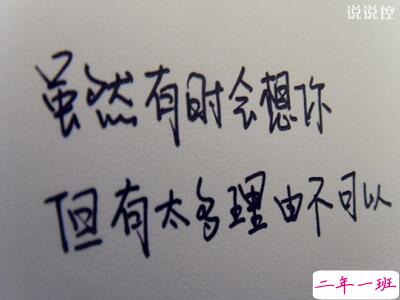 说说控
虽然有时会想你
但有太多理由不可以
二年一班